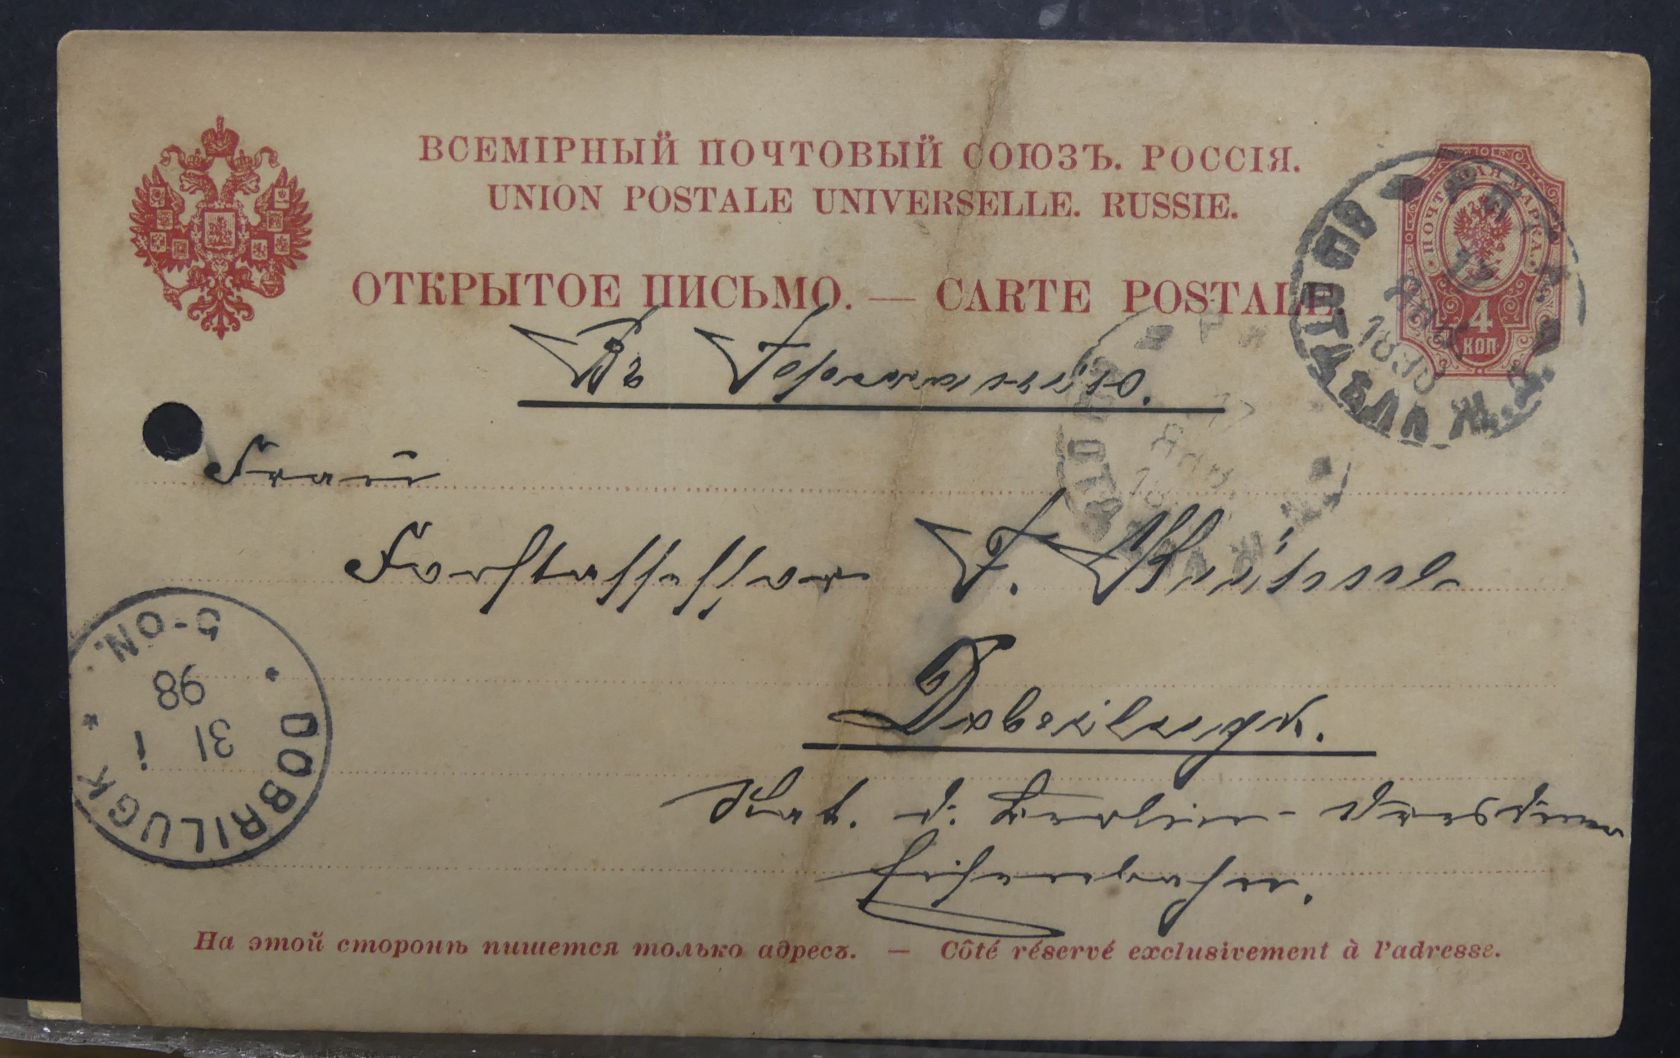 ВСЕМІРНЫЙ ПОЧТОВЫЙ СОЮЗЪ. РОССІЯ.
UNION POSTALE UNIVERSELLE. RUSSIE.
ОТКРЫТОЕ ПИСЬМО. — CARTE POSTALE.
ПОЧТОВАЯ МАРКА.
4
КОП
Въ Германію.
Frau
Forstassessor F.
Dobrilugk.
Stat. d. Berlin-Dresdener
Eisenbahn.
DOBRILUGK
31
1
98
5-6N.
На этой сторонѣ пишется только адресъ. — Côté réservé exclusivement à l'adresse.